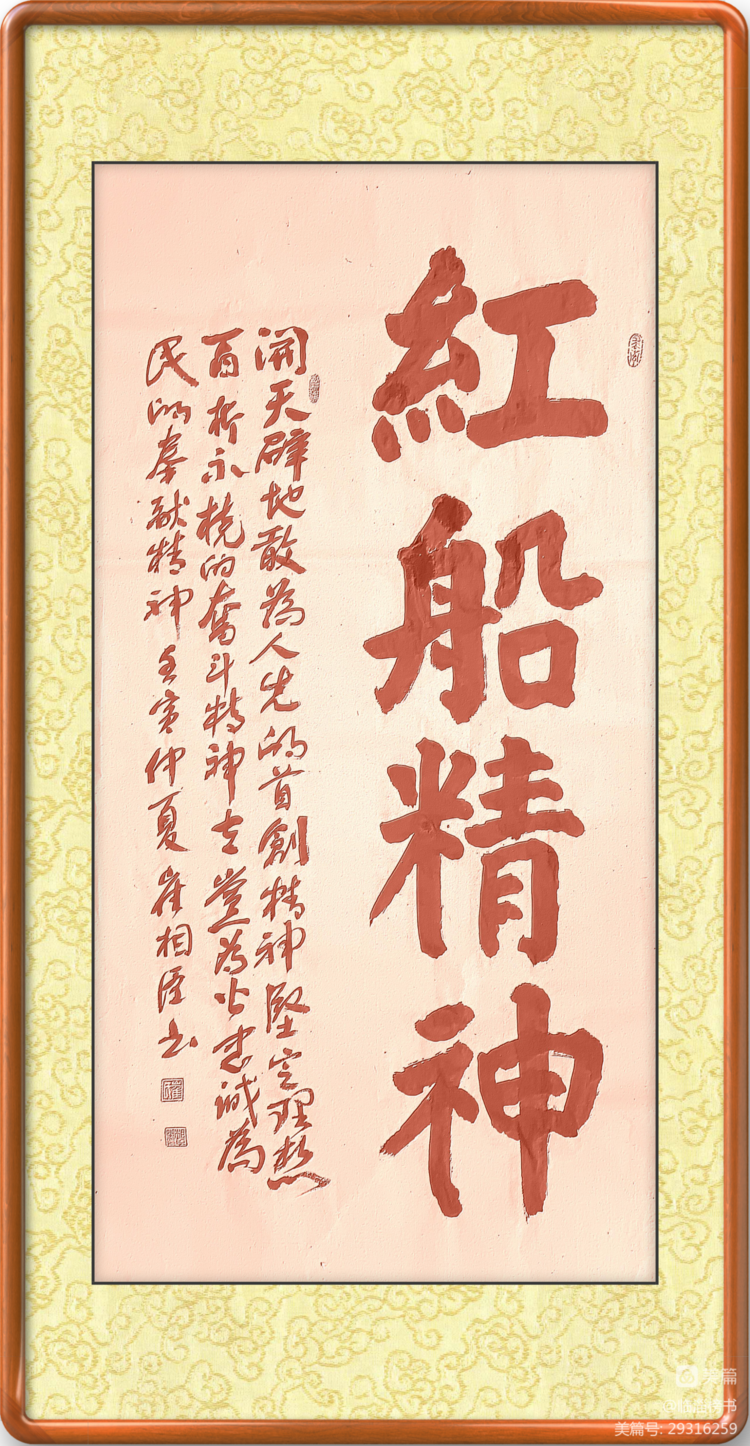 紅船精神
開天辟地敢為人先的首創精神堅定理想
百折不撓的奮斗精神立黨為公忠誠為
民的奉献精神壬寅仲夏崔相臣书
美篇
美篇号: 29316259